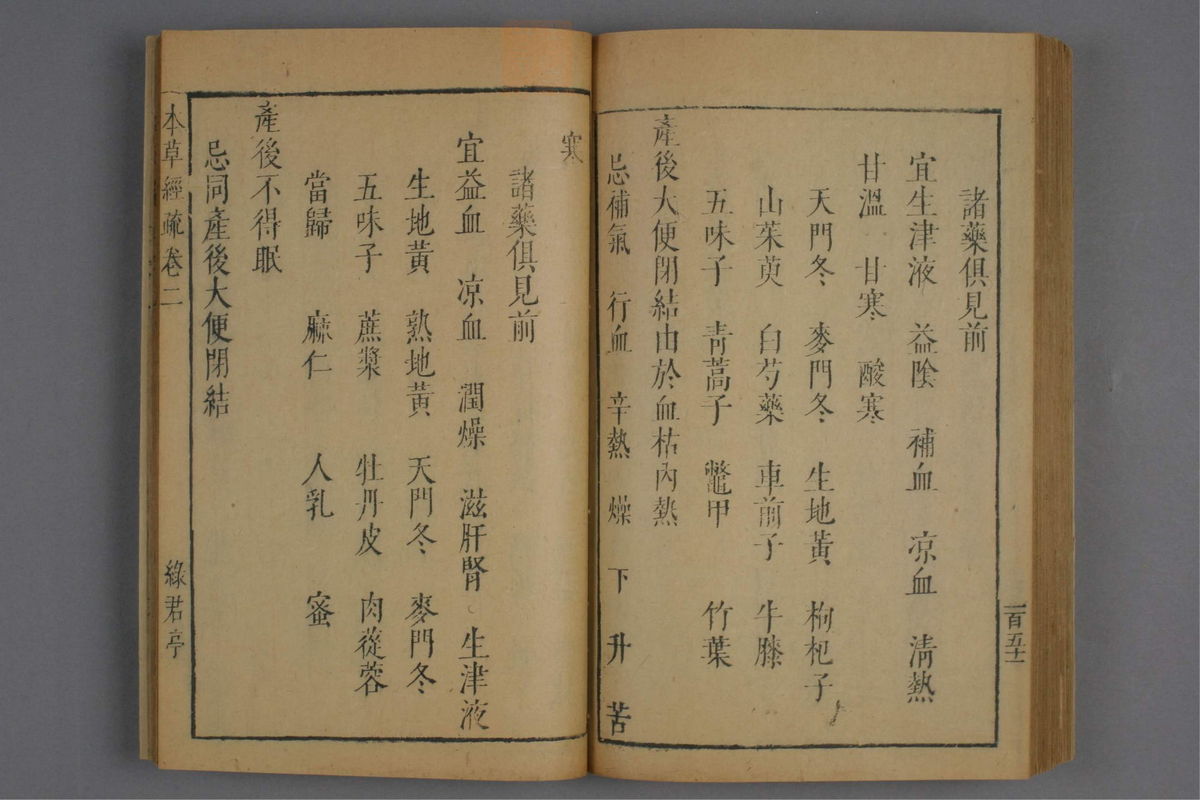 諸藥俱見前
宜生津液　益陰　補血　凉血　淸熱
甘溫　甘寒　酸寒
天門冬　麥門冬　生地黃　枸杞子
山茱萸　白芍藥　車前子　牛膝
五味子　靑蒿子　鼈甲　竹葉
產後大便閉結由於血枯內熱
忌補氣　行血　辛熱　燥　下　升　苦
寒
諸藥俱見前
宜益血　凉血　潤燥　滋肝腎　生津液
生地黃　熟地黃　天門冬　麥門冬
五味子　蔗漿　牡丹皮　肉蓯蓉
當歸　麻仁　人乳　蜜
產後不得眠
忌同產後大便閉結
本草經疏卷二　綠君亭
一百五十一